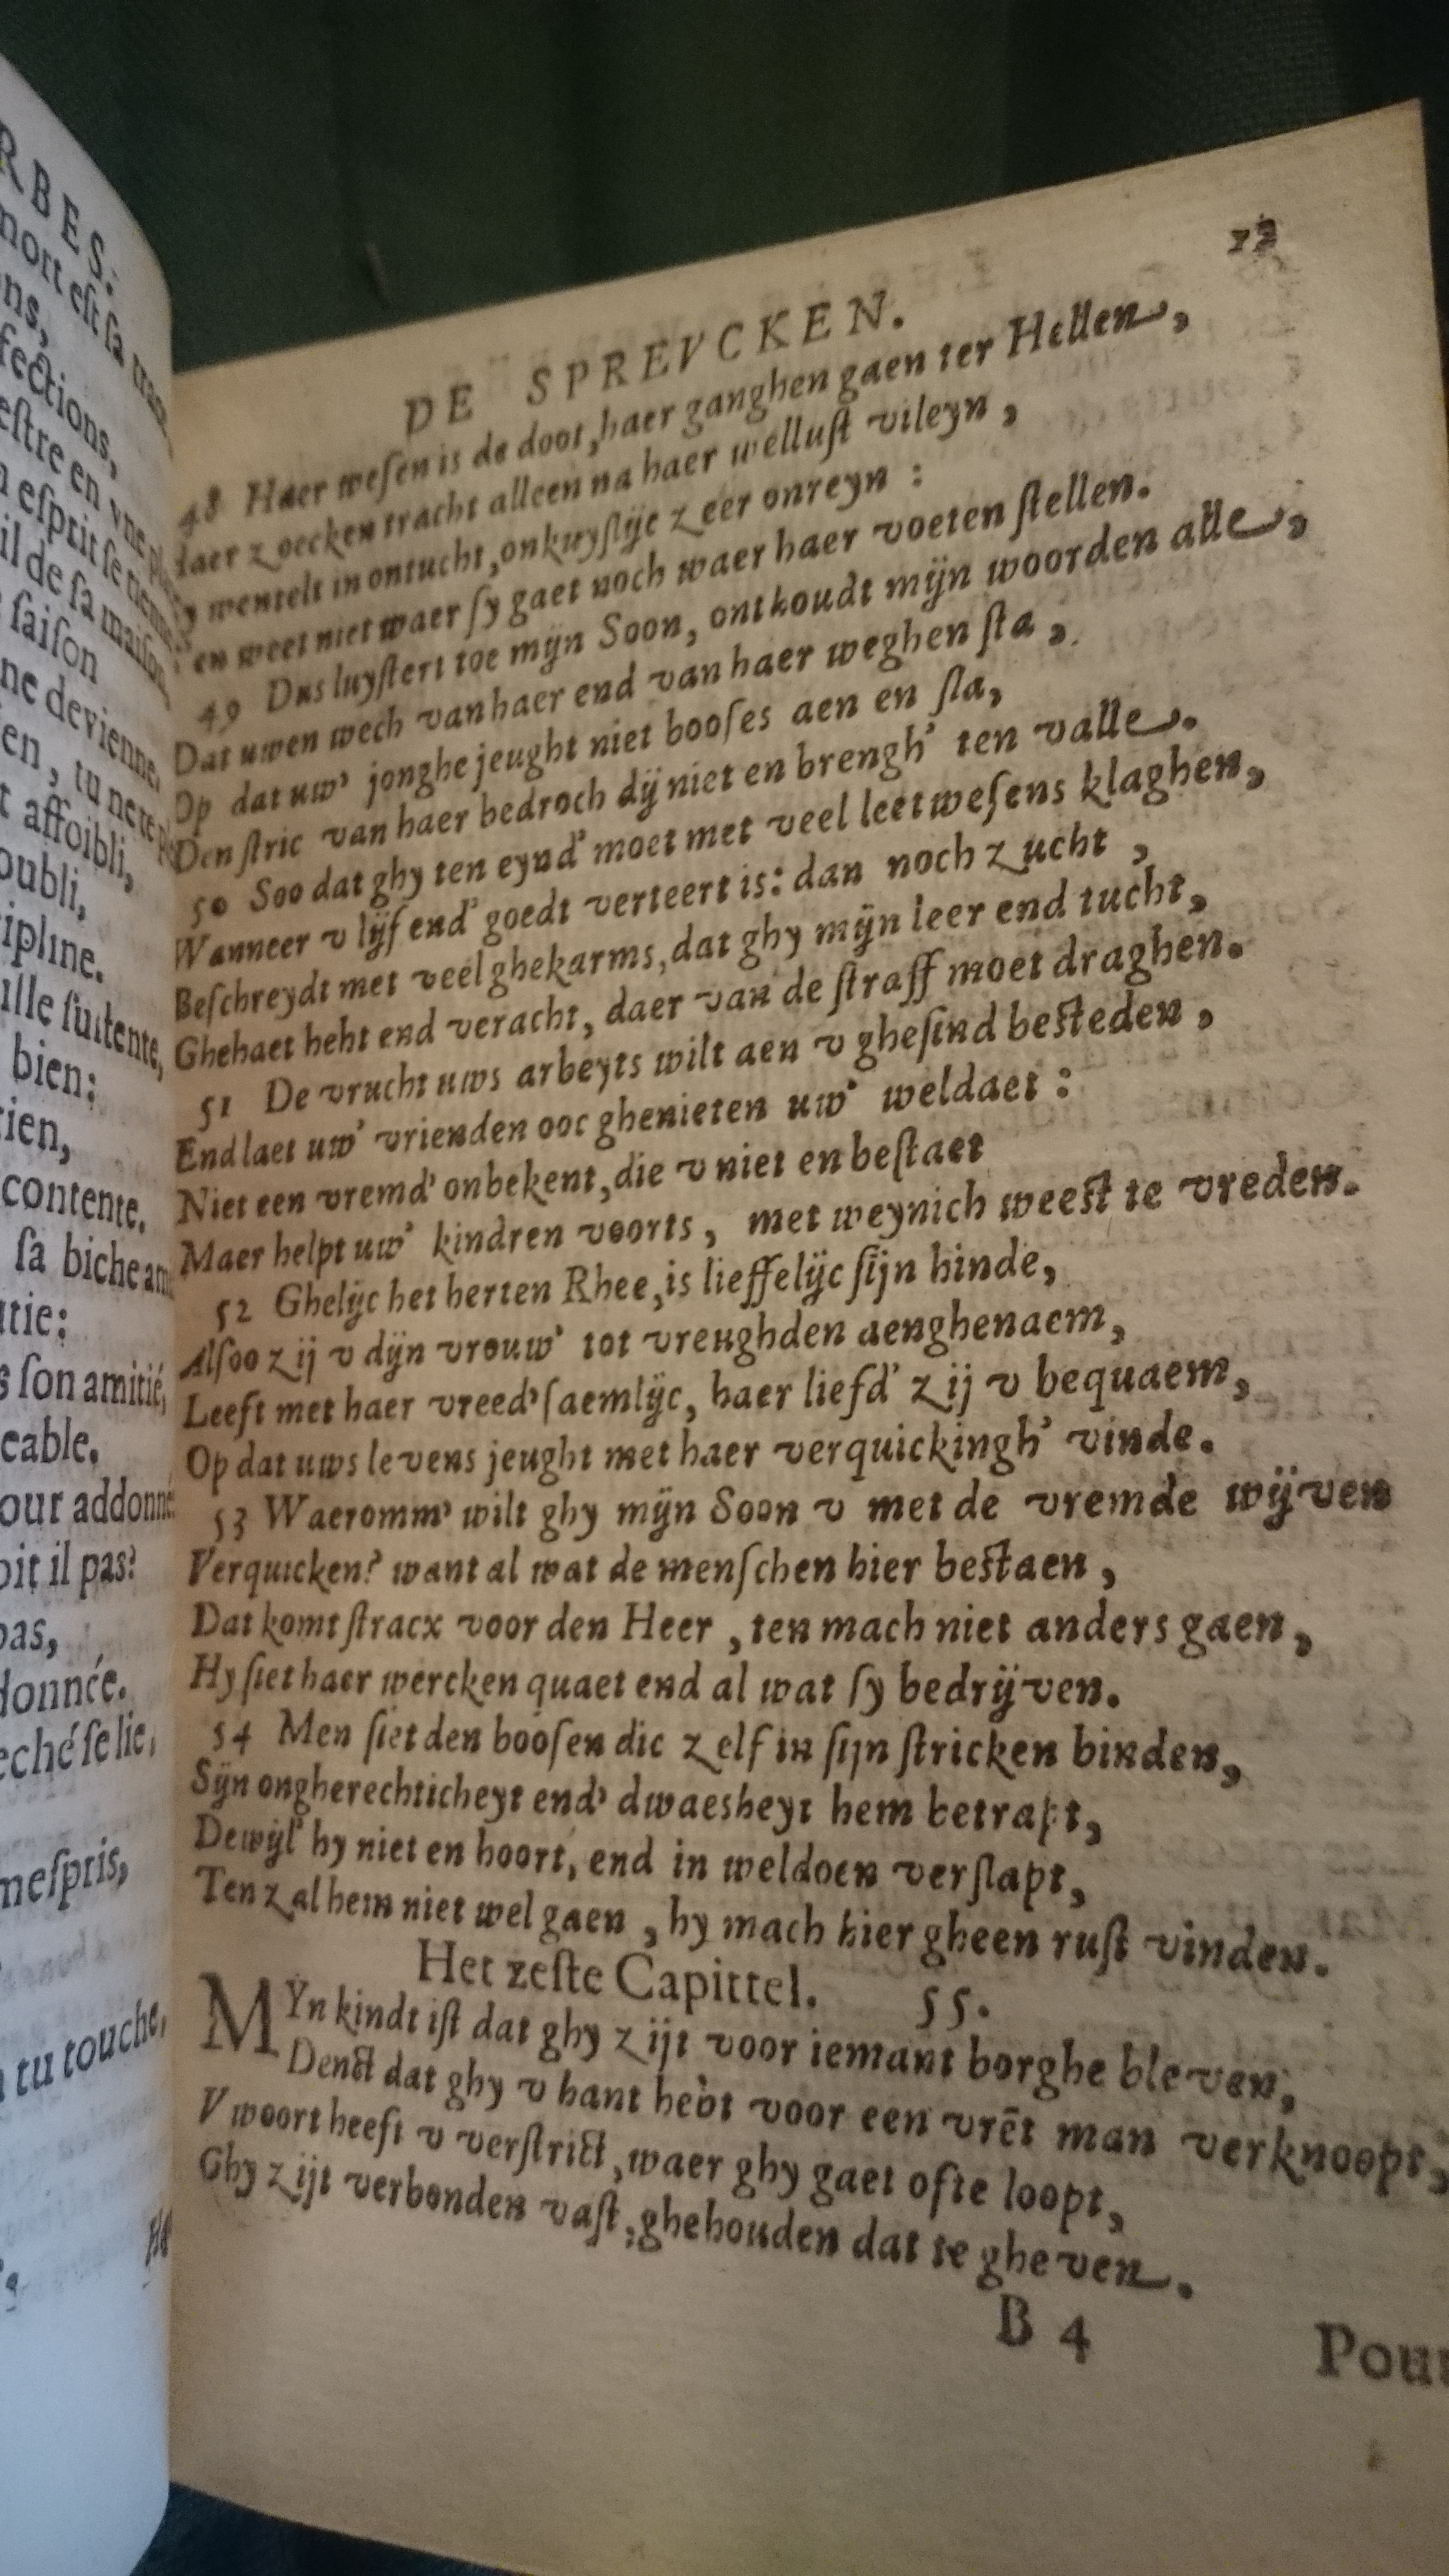 RBES.
mort eſt ſa
ons,
fections,
eſtre en vne
eſprit ſe
il de ſa maiſon
ſaiſon
ne devienne,
en, tu ne te
t affoibli,
oubli,
ipline.
ille ſuitente,
bien:
ien,
contente.
ſa biche am
tie:
s ſon amitié,
eable.
our addonné
oit il pas?
pas,
donnée.
eché ſe lie,
meſpris,
tu touche,
12
DE SPREVCKEN.
48 Haer weſen is de doot, haer ganghen gaen ter Hellen,
Haer zoecken tracht alleen na haer welluſt vileyn,
Sy wentelt in ontucht, onkuyſtĳc zeer onreyn:
en weet niet waer ſy gaet noch waer haer voeten ſtellen.
49 Dus luyſtert toe mĳn Soon, onthoudt mĳn woorden alle,
Dat uwen wech van haer end van haer weghen ſta,
Op dat uw' jonghe jeught niet booſes aen en ſla,
Den ſtric van haer bedroch dĳ niet en brengh' ten valle.
50 Soo dat ghy ten eynd' moet met veel leetweſens klaghen,
Wanneer v lĳf end' goedt verteert is: dan noch zucht,
Beſchreydt met veel ghekarms, dat ghy mĳn leer end tucht,
Ghehaet hebt end veracht, daer van de ſtraff moet draghen.
51 De vrucht uws arbeyts wilt aen v gheſind beſteden,
End laet uw' vrienden ooc ghenieten uw' weldaet:
Niet een vremd' onbekent, die v niet en beſtaet
Maer helpt uw' kindren voorts, met weynich weeſt te vreden.
52 Ghelĳc het herten Rhee, is lieffelĳc ſijn hinde,
Alſoo zij v dĳn vrouw' tot vreughden aenghenaem,
Leeft met haer vreed'ſaemlĳc, haer liefd' zij v bequaem,
Op dat uws levens jeught met haer verquickingh' vinde.
53 Waeromm' wilt ghy mĳn Soon v met de vremde wĳven
Verquicken? want al wat de menſchen hier beſtaen,
Dat komt ſtracx voor den Heer, ten mach niet anders gaen,
Hy ſiet haer wercken quaet end al wat ſy bedrĳven.
54 Men ſiet den booſen dic zelf in ſijn ſtricken binden,
Sĳn ongherechticheyt end' dwaesheyt hem betrapt,
Dewĳl' hy niet en hoort, end in weldoen verſlapt,
Ten zal hem niet wel gaen, hy mach hier gheen ruſt vinden.
Het zeſte Capittel. 55.
MYn kindt iſt dat ghy zijt voor iemant borghe bleven,
Denct dat ghy v hant hebt voor een vrēt man verknoopt,
V woort heeft v verſtrict, waer ghy gaet ofte loopt,
Ghy zijt verbonden vaſt, ghehouden dat te gheven.
B 4
Pour